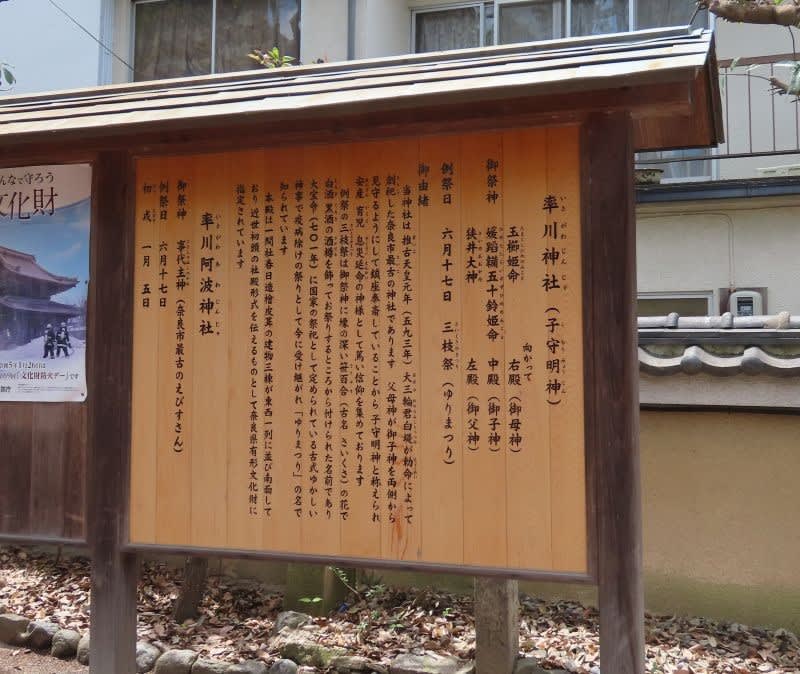 率川神社（子守明神）
いさがわじんじゃ
向かって
御祭神
玉櫛姫命
右殿（御母神）
媛蹈韛五十鈴姫命
中殿（御子神）
狭井大神
左殿（御父神）
例祭日　六月十七日　三枝祭（ゆりまつり）
御由緒
当神社は推古天皇元年（五九三年）大三輪君白堤が勅命によって
創祀した奈良市最古の神社であります　父母神が御子神を両側から
見守るようにして鎮座奉斎していることから子守明神と称えられ
安産　育児　息災延命の神様として篤い信仰を集めております
例祭の三枝祭は御祭神に縁の深い笹百合（古名　さいくさ）の花で
白酒　黒酒の酒樽を飾ってお祭りするところから付けられた名前であり
大宝令（七〇一年）に国家の祭祀として定められている古式ゆかしい
神事で疫病除けの祭りとして今に受け継がれ「ゆりまつり」の名で
知られています
本殿は一間社春日造檜皮葺の建物三棟が東西一列に並び南面して
おり　近世初頭の社殿形式を伝えるものとして奈良県有形文化財に
指定されています
率川阿波神社
いさがわあわじんじゃ
御祭神　事代主神（奈良市最古のえびすさん）
例祭日　六月十七日
初戎　一月五日
んなで守ろう
文化財
「文化財防火デー」です